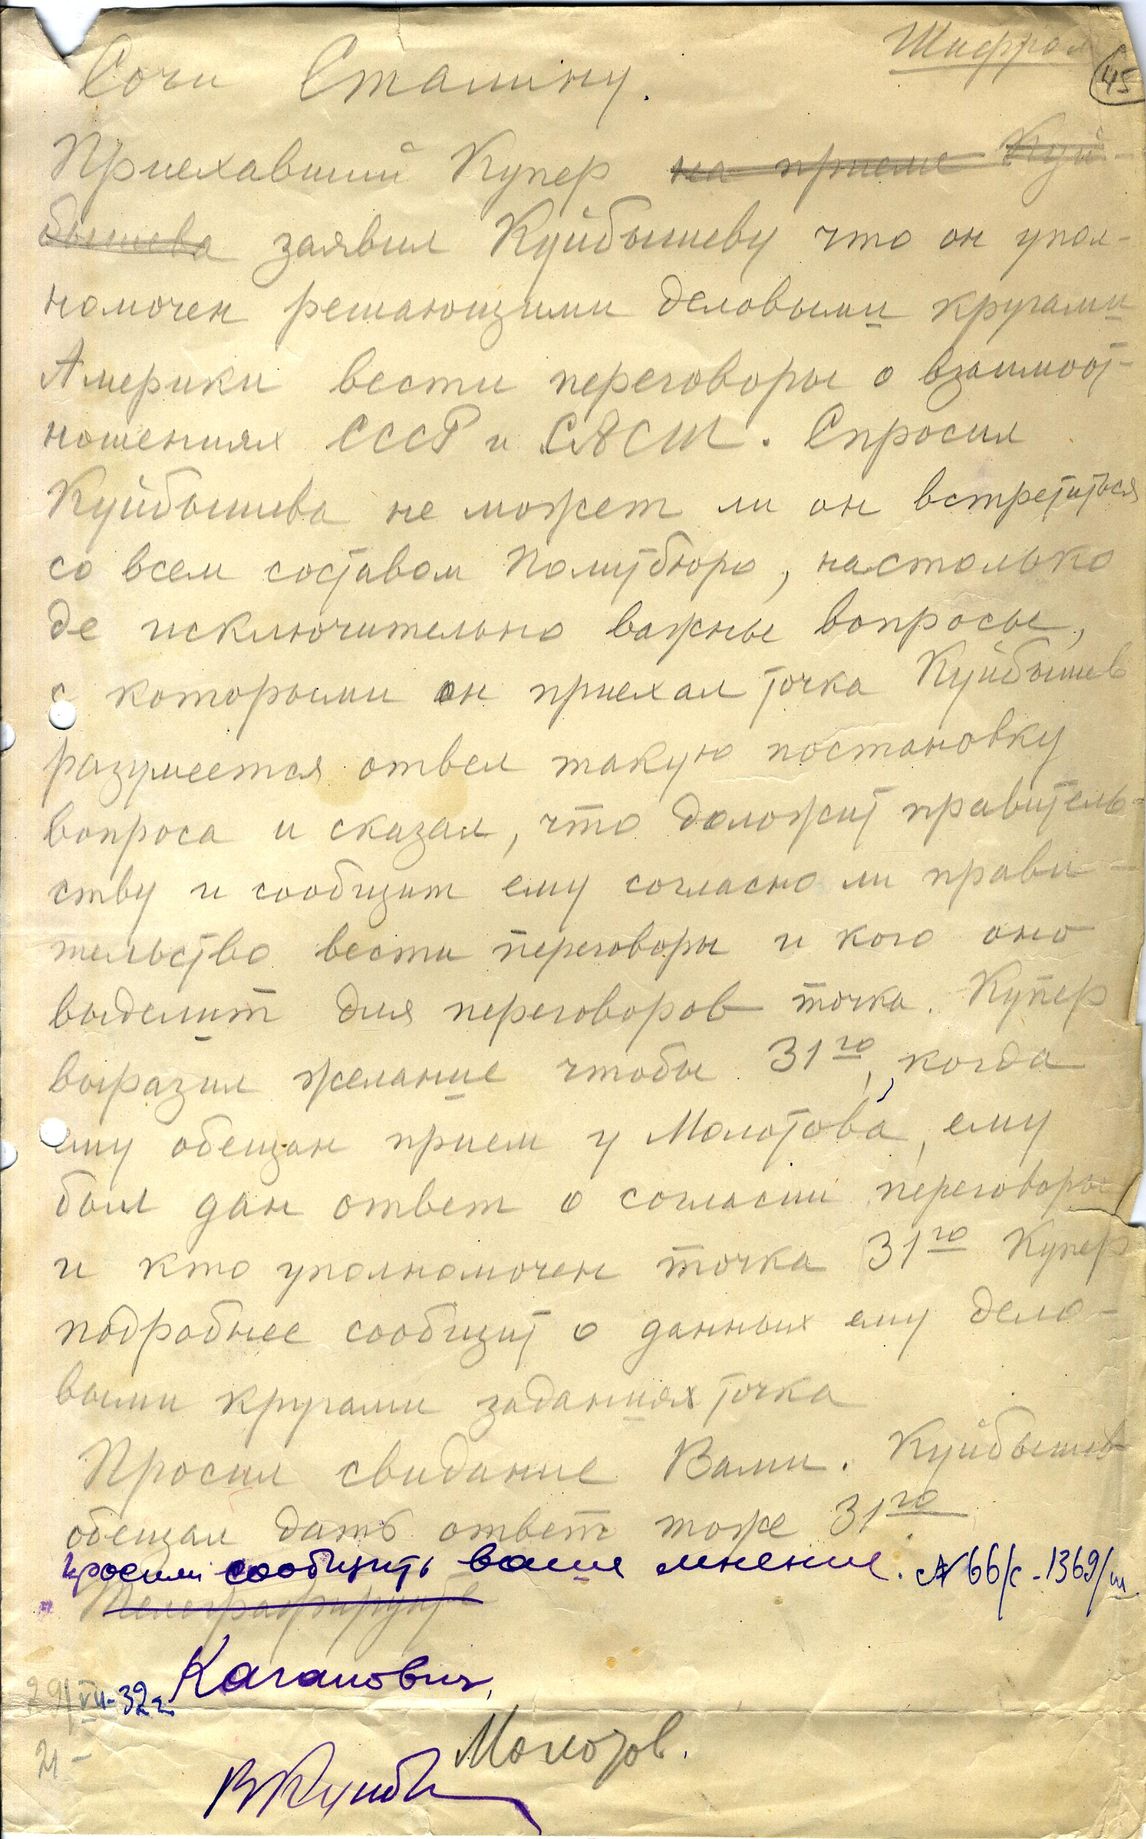 Шифром
45
Сочи Сталину.
Приехавший Купер на приеме Куй-
бышева заявил Куйбышеву что он упол-
номочен решающими деловыми кругами
Америки вести переговоры о взаимоот-
ношениях СССР и САСШ. Спросил
Куйбышева не может ли он встретиться
со всем составом Политбюро, настолько
де исключительно важные вопросы,
с которыми он приехал точка Куйбышев
разумеется отвел такую постановку
вопроса и сказал, что доложит правитель-
ству и сообщит ему согласно ли прави-
тельство вести переговоры и кого оно
выделит для переговоров точка. Купер
выразил желание чтобы 31го, когда
ему обещан прием у Молотова, ему
был дан ответ о согласии переговоры
и кто уполномочен точка 31го Купер
подробнее сообщит о данных ему дело-
выми кругами заданиях точка
Просил свидание Вами. Куйбышев
обещал дать ответ тоже 31го
просим сообщить ваше мнение. № 66/с - 1369/ш
Телеграфируйте
Каганович,
29/VII-32 г.
Молотов.
21-
В Куйб